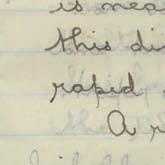 is nea
this di
rapid
A r